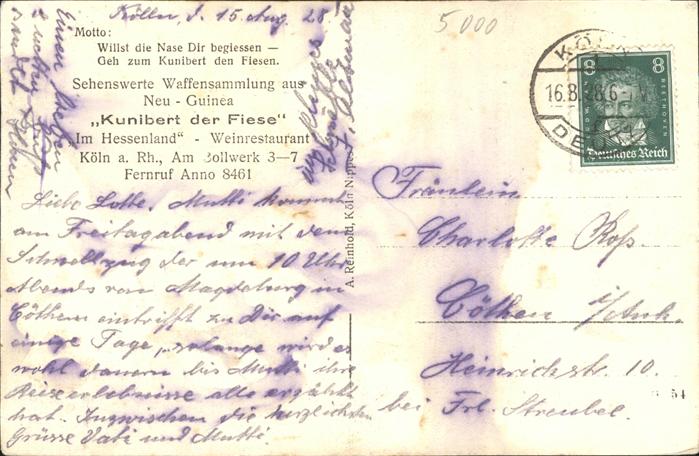 Kölln, d. 15. Aug. 28.
5000
Motto:
Willst die Nase Dir begiessen —
Geh zum Kunibert den Fiesen.
Sehenswerte Waffensammlung aus
Neu - Guinea
„Kunibert der Fiese"
„Im Hessenland" - Weinrestaurant
Köln a. Rh., Am Bollwerk 3—7
Fernruf Anno 8461
Liebe Lotte. Mutti kommt
am Freitagabend mit dem
Schnellzug der um 10 Uhr
Abends von Magdeburg in
Cöthen eintrifft zu Dir auf
einige Tage, solange wird es
wohl dauern bis Mutti ihre
Reiseerlebnisse alle erzählt
hat. Inzwischen die herzlichsten
Grüsse Vati und Mutti.
Einen
A. Reinhold, Köln-Nippes
KÖLN
16.8.28.6
DEUTZ
8 8
BEETHOVEN
Deutsches Reich
Fräulein
Charlotte Roß.
Cöthen i/Anh.
Heinrichstr. 10.
bei Frl. Streubel.
54